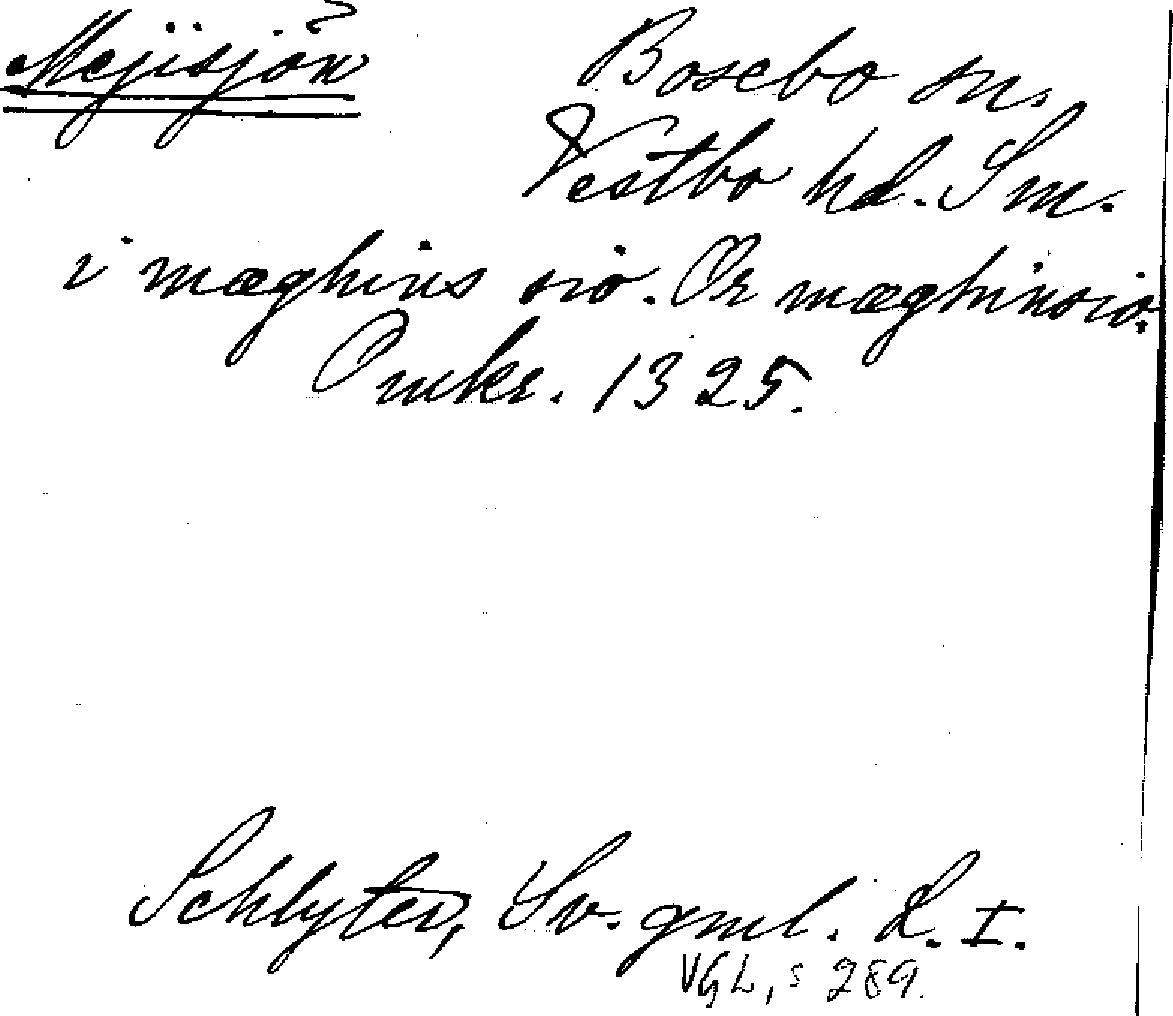 Mejisjön Bosebo sn.
Vestbo hd. Sm.
i mæghins sio. Or mæghinsio.
Omkr. 1325.
Schlyter, Sv. gml. L. I.
VGL, s 289.